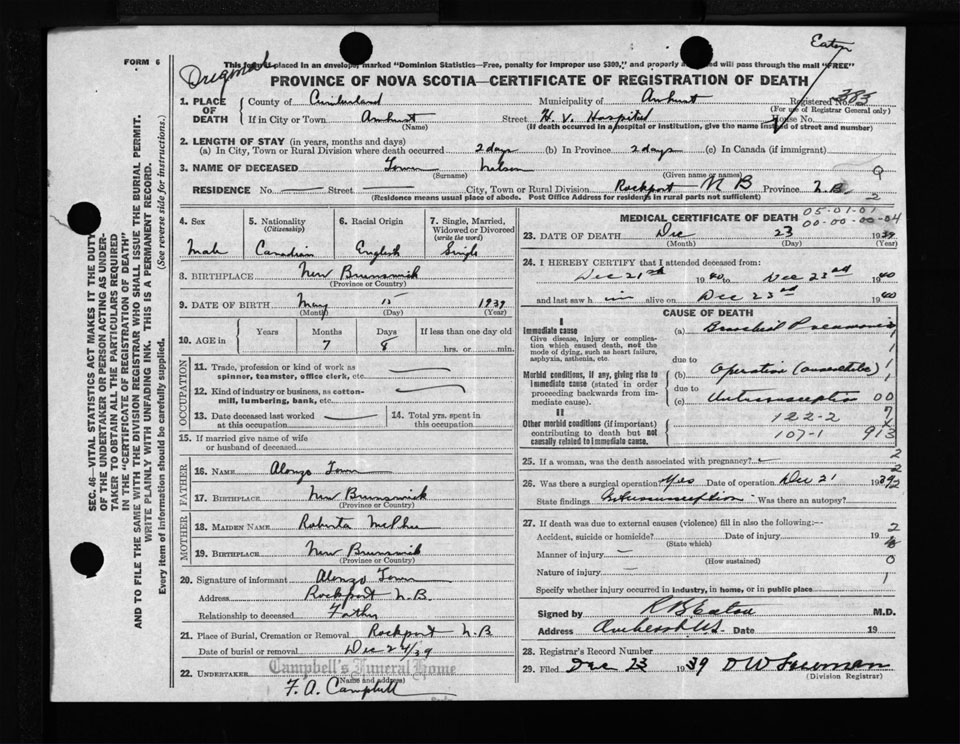 FORM 6
Original
Eaton
This form if placed in an envelope, marked "Dominion Statistics—Free, penalty for improper use $300," and properly addressed will pass through the mail "FREE"
PROVINCE OF NOVA SCOTIA—CERTIFICATE OF REGISTRATION OF DEATH
1. PLACE OF DEATH
County of Cumberland Municipality of Amherst Registered No. 383
(For use of Registrar General only)
If in City or Town Amherst Street H. V. Hospital House No.
(Name) (If death occurred in a hospital or institution, give the name instead of street and number)
2. LENGTH OF STAY (in years, months and days)
(a) In City, Town or Rural Division where death occurred 2 days (b) In Province 2 days (c) In Canada (if immigrant)
3. NAME OF DECEASED Town Nelson 9
(Surname) (Given name or names)
RESIDENCE No. Street City, Town or Rural Division Rockport N B Province N.B. 2
(Residence means usual place of abode. Post Office Address for residents in rural parts not sufficient)
4. Sex Male
5. Nationality (Citizenship) Canadian
6. Racial Origin English
7. Single, Married, Widowed or Divorced (write the word) Single
8. BIRTHPLACE New Brunswick
(Province or Country)
9. DATE OF BIRTH May 15 1939
(Month) (Day) (Year)
10. AGE in Years Months Days If less than one day old
7 8 hrs. or min.
OCCUPATION
11. Trade, profession or kind of work as spinner, teamster, office clerk, etc.
12. Kind of industry or business, as cotton-mill, lumbering, bank, etc.
13. Date deceased last worked at this occupation
14. Total yrs. spent in this occupation
15. If married give name of wife or husband of deceased
FATHER
16. NAME Alonzo Town
17. BIRTHPLACE New Brunswick
(Province or Country)
MOTHER
18. MAIDEN NAME Roberta McPhee
19. BIRTHPLACE New Brunswick
(Province or Country)
20. Signature of informant Alonzo Town
Address Rockport N.B.
Relationship to deceased Father
21. Place of Burial, Cremation or Removal Rockport N.B
Date of burial or removal Dec 24/39
Campbell's Funeral Home
22. UNDERTAKER
(Name and address)
F. A. Campbell
MEDICAL CERTIFICATE OF DEATH 05-01-01
00-00-00-04
23. DATE OF DEATH Dec 23 1939
(Month) (Day) (Year)
24. I HEREBY CERTIFY that I attended deceased from:
Dec 21st 1940 to Dec 23rd 1940
and last saw him alive on Dec 23rd 1940
CAUSE OF DEATH
I
Immediate cause (a) Bronchial Pneumonia
Give disease, injury or complication which caused death, not the mode of dying, such as heart failure, asphyxia, asthenia, etc.
due to
Morbid conditions, if any, giving rise to immediate cause (stated in order proceeding backwards from immediate cause). (b) Operation (anaesthetic)
due to
(c) Intussusception 00
II
122-2 7
Other morbid conditions (if important) contributing to death but not causally related to immediate cause. 107-1 913
25. If a woman, was the death associated with pregnancy? 2
26. Was there a surgical operation? Yes Date of operation Dec 21 1939 2
State findings Intussusception Was there an autopsy?
27. If death was due to external causes (violence) fill in also the following:—
Accident, suicide or homicide? Date of injury 19 2
(State which)
Manner of injury 0
(How sustained)
Nature of injury 1
Specify whether injury occurred in industry, in home, or in public place
Signed by R B Eaton M.D.
Address Amherst N.S. Date 19
28. Registrar's Record Number
29. Filed Dec 23 1939
(Division Registrar)
SEC. 46—VITAL STATISTICS ACT MAKES IT THE DUTY
OF THE UNDERTAKER OR PERSON ACTING AS UNDER-
TAKER TO OBTAIN ALL THE PARTICULARS REQUIRED
IN THE "CERTIFICATE OF REGISTRATION OF DEATH"
AND TO FILE THE SAME WITH THE DIVISION REGISTRAR WHO SHALL ISSUE THE BURIAL PERMIT.
WRITE PLAINLY WITH UNFADING INK. THIS IS A PERMANENT RECORD.
Every item of information should be carefully supplied. (See reverse side for instructions.)